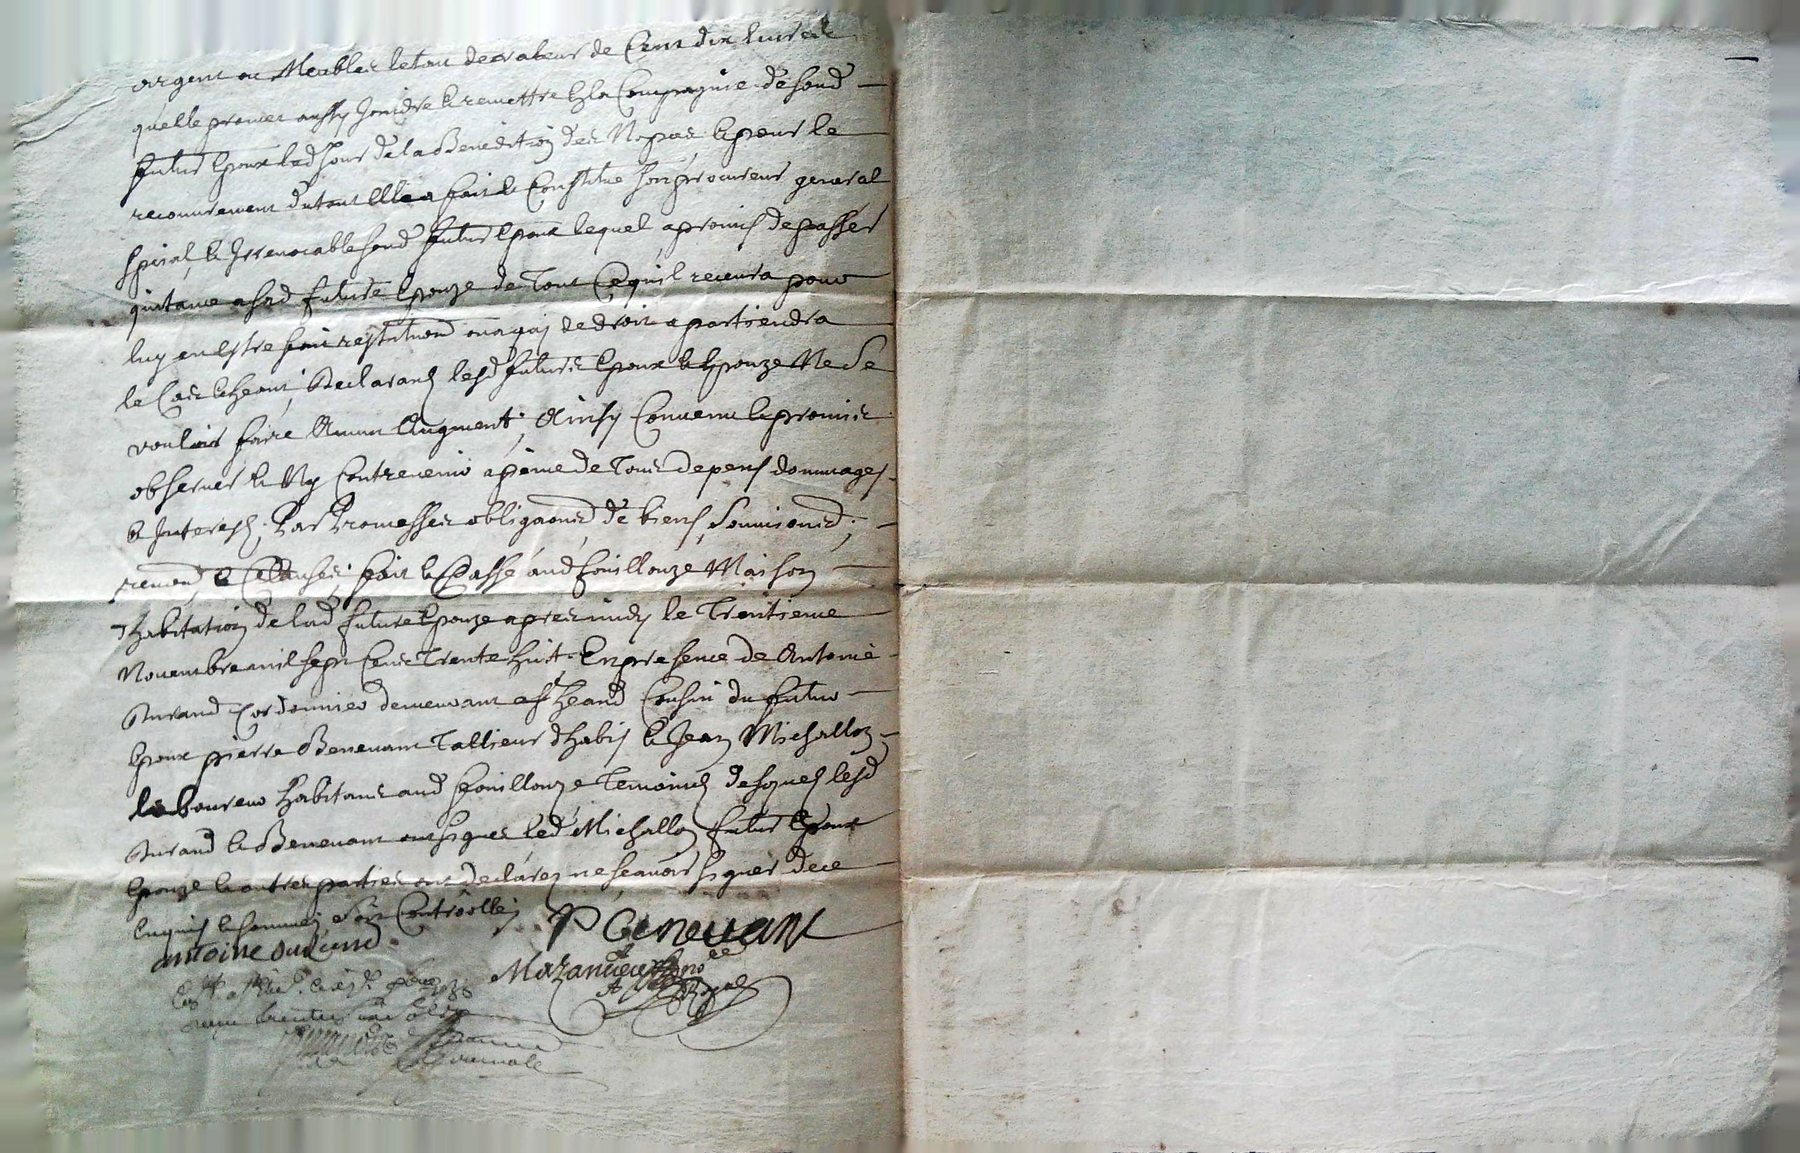 argent ou Meubles letout devaleur de Cent dix livres
quelle promet aussy Joindre & remettre Ez la Compagnie de sond
futur Epoux led Jour de la Benediction des Nopces & pour le
recouvrement dutout Elle a fait & Constitué son procureur general
spécial & Irrevocable sond futur Epoux lequel a promis de passer
quitance a sad future Epouze de Tout Ce quil recevra pour
luy en Estre fait restitution ou a qui de droit apartiendra
le Cas Echeant, Declarants lesd futurs Epoux & Epouze Ne Se
vouloir faire Aucun Augment; Ainsy Convenu & promis
observer & Ny Contrevenir a peine de Tous depens dommages
& Interests; Par Promesses obligaons de biens, Soumisions;
renond & Clauses; fait & Passé aud fouillouze Maison
d'habitation de lad future Epouze apres midy le Trentieme
Novembre mil sept Cens Trente huit Enpresence de Antoine
Durand Cordonnier demeurant a St heand Cousin du futur
Epoux pierre Benevant Tallieur dhabis & Jean Michallon
laboureur habitans aud fouillouze Temoins desquels lesd
Durand & Benevant ont signés led Michallon futur Epoux
Epouze & autres parties ont declarés ne scavoir signer dece
Enquis & sommés, Soit Controllé
antoine durand
P Benevant
Royal